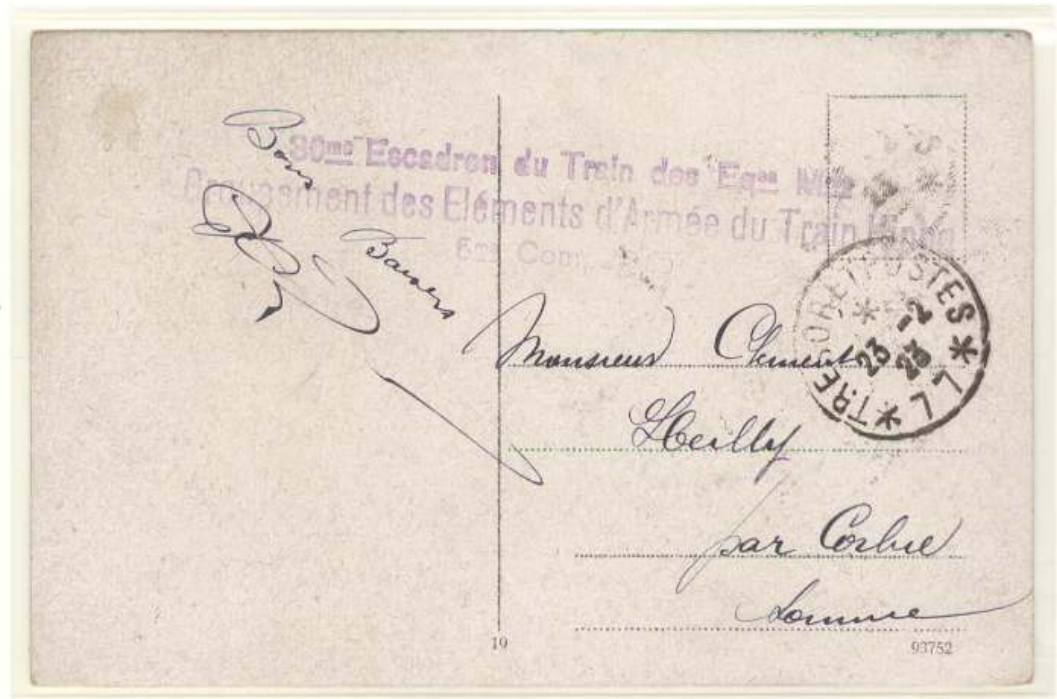 Bons
Baisers
30me Escadron du Train des Eqes Mres
Groupement des Eléments d'Armée du Train
5me Com
TRESOR ET POSTES
23 -2
23
* 77 *
Monsieur Clément
Heilly
par Corbie
Somme
19
93752